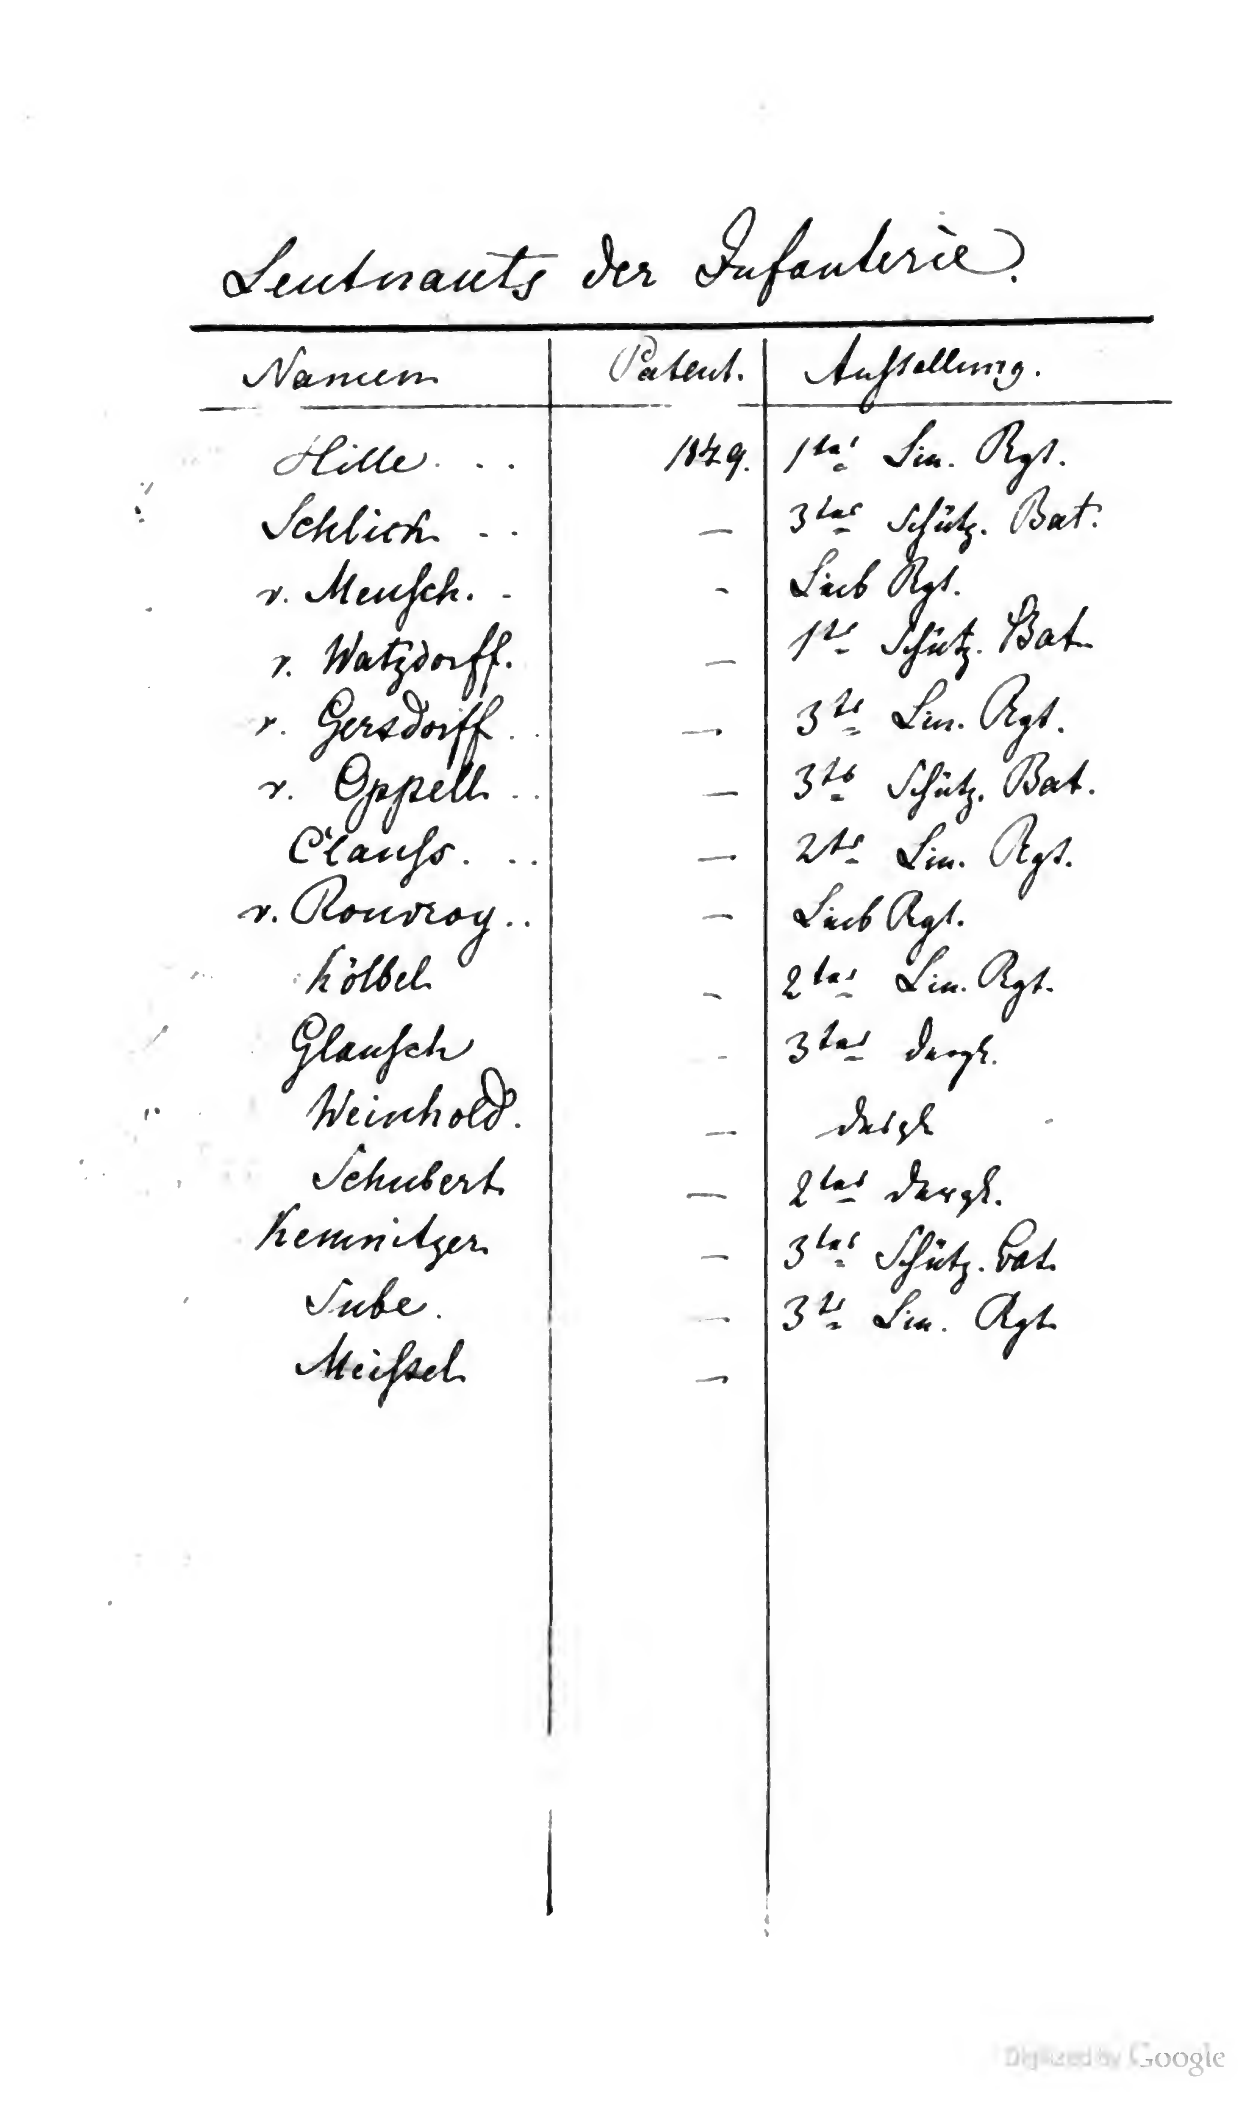 Leutnants der Infanterie.
Namen Patent. Anstellung.
Hille. . . 1849. 1tes Lin. Rgt.
Schlick. . . — 3tes Schütz. Bat.
v. Mensch. - - Leib Rgt.
v. Watzdorff. — 1tes Schütz. Bat.
v. Gersdorff . . — 3tes Lin. Rgt.
v. Oppell. . . — 3tes Schütz. Bat.
Clauſs. . . — 2tes Lin. Rgt.
v. Rouvroy . . — Leib Rgt.
Kölbel. - 2tes Lin. Rgt.
Glausch - 3tes dergl.
Weinhold. — dergl
Schubert. — 2tes dergl.
Kemnitzer. — 3tes Schütz. Bat.
Sube. — 3tes Lin. Rgt.
Meiſsel. —
Digitized by Google